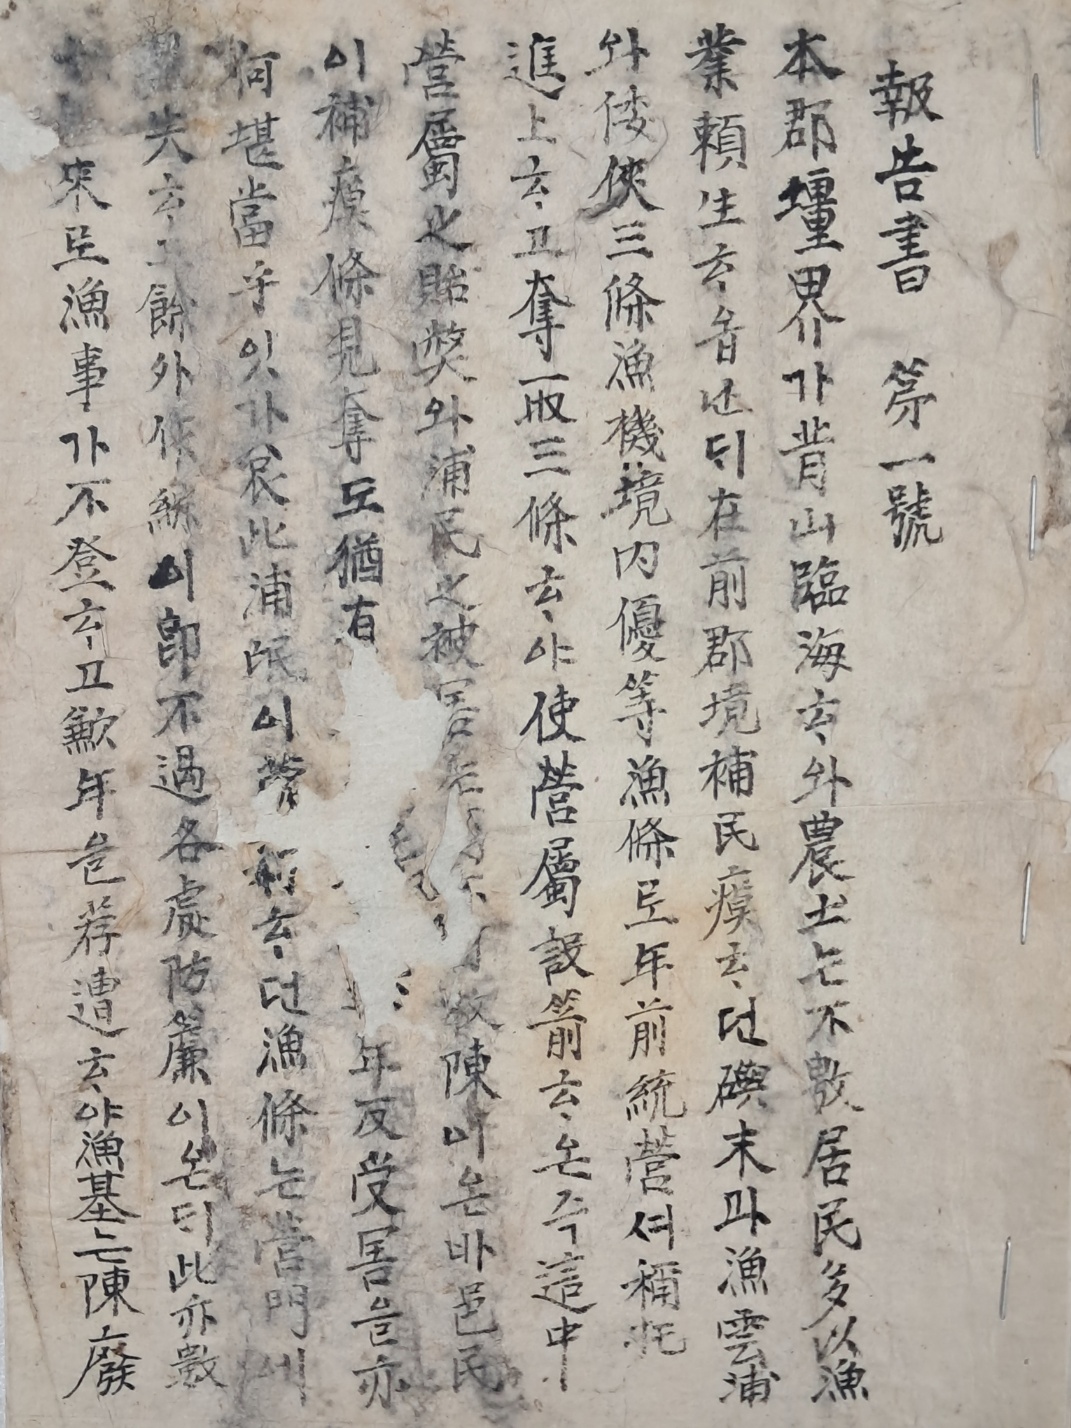 報告書 第一號
本郡壃界가背山臨海ᄒᆞ와農土ᄂᆞᆫ不敷居民多以漁
業賴生ᄒᆞ옵ᄂᆞᆫᄃᆡ在前郡境補民瘼ᄒᆞ던礖末과漁雲浦
와倭俠三條漁機境內優等漁條로年前統營셔稱托
進上ᄒᆞ고奪取三條ᄒᆞ야使營屬設箭ᄒᆞ온즉這中
營屬之貽弊와浦民之被害 陳이온바邑民
이補瘼條見奪도猶有 年反受害ᄒᆞᆷ亦
何堪當乎잇가哀此浦民이營 ᄒᆞ던漁條ᄂᆞᆫ營門에
失ᄒᆞ고餘外 이卽不過各處防簾이온ᄃᆡ此亦數
來로漁事가不登ᄒᆞ고歉年을荐遭ᄒᆞ야漁基ᄂᆞᆫ陳廢